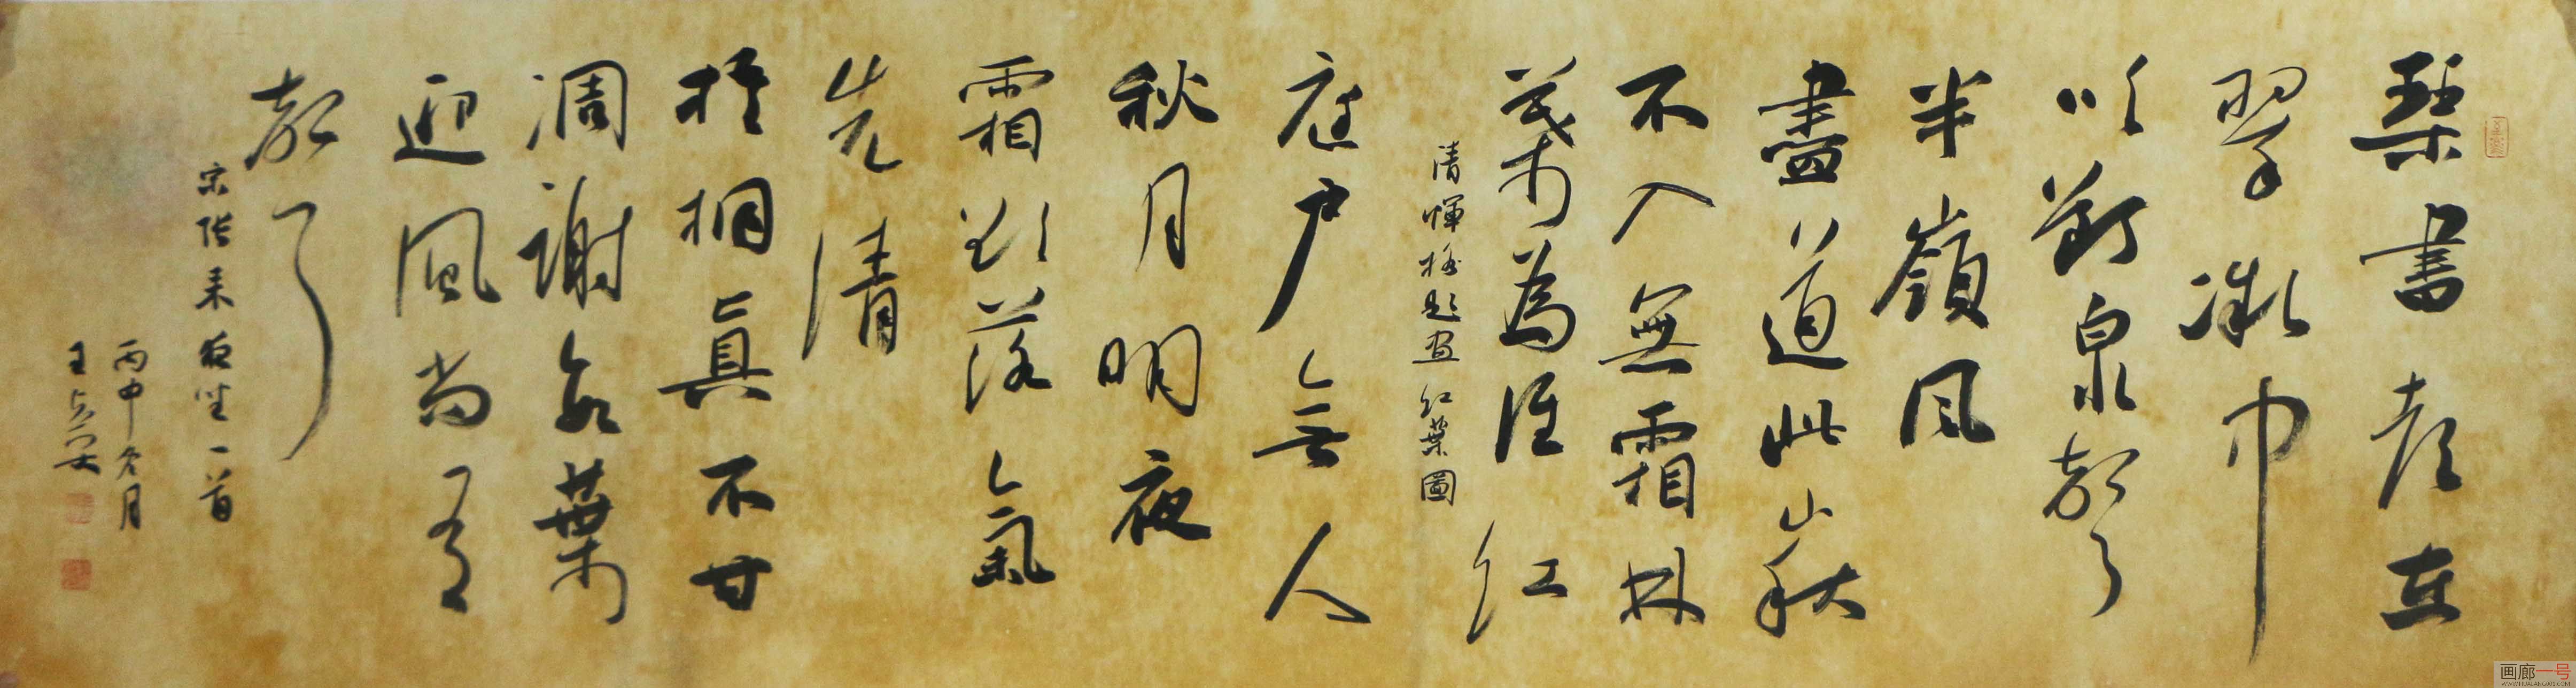 琴書在
翠微中
吟對泉聲
半嶺風
盡道此山秋
不入無霜林
葉為誰紅
清惲格題畫紅葉圖
庭戶無人
秋月明夜
霜欲落氣
先清
梧桐真不甘
凋謝數葉
迎風尚有
聲
宋張耒夜坐一首
丙申冬月
王
画廊一号
WWW.HUALANG001.COM